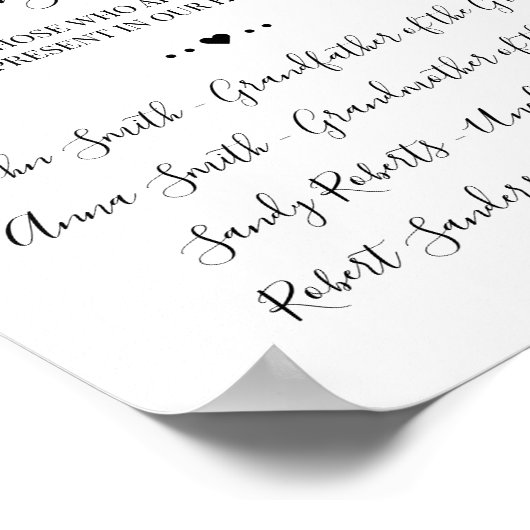 HOSE WHO A
PRESENT IN OUR
hn Smith - Grandfather of the G
Anna Smith - Grandmother of the
Sandy Roberts - Un
Robert Sander